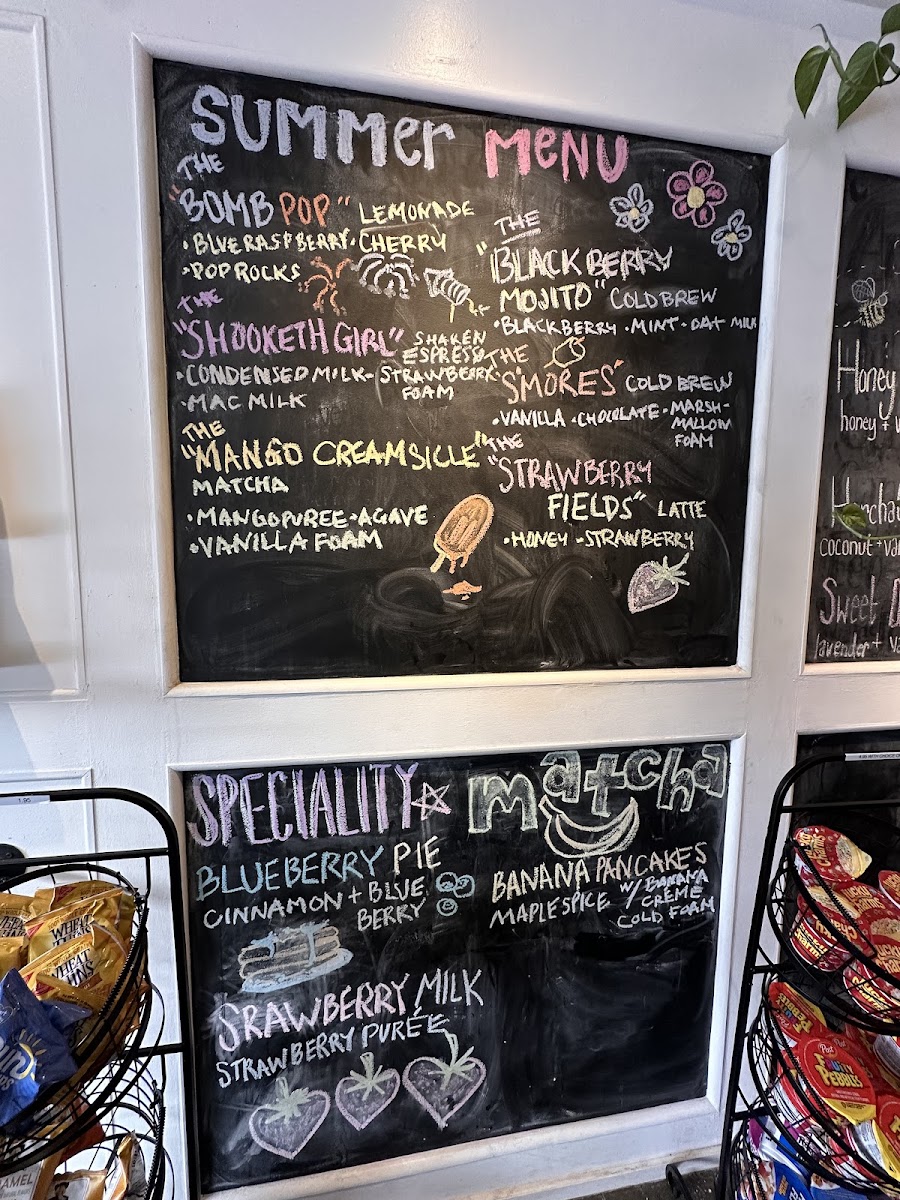 SUMMer MeNU
THE
"BOMB POP" LEMONADE
•BLUE RASPBERRY•CHERRY
•POP ROCKS
THE
"SHOOKETH GIRL" SHAKEN
ESPRESSO
•CONDENSED MILK•STRAWBERRY
FOAM
•MAC MILK
THE
"MANGO CREAMSICLE"
MATCHA
•MANGO PUREE•AGAVE
•VANILLA FOAM
THE
"BLACKBERRY
MOJITO" COLDBREW
•BLACKBERRY •MINT•OAT MILK
THE
"S'MORES" COLD BREW
•VANILLA •CHOCOLATE •MARSH-
MALLOW
FOAM
THE
"STRAWBERRY
FIELDS" LATTE
•HONEY •STRAWBERRY
Honey
honey +
coconut +
Sweet
lavender +
SPECIALITY
BLUEBERRY PIE
CINNAMON + BLUE
BERRY
SRAWBERRY MILK
STRAWBERRY PURÉE
matcha
BANANA PANCAKES
MAPLE SPICE W/ BANANA
CRÈME
COLD FOAM
1.95
WHEAT
THINS
WHEAT
THINS
Post
FRUITY
PEBBLES